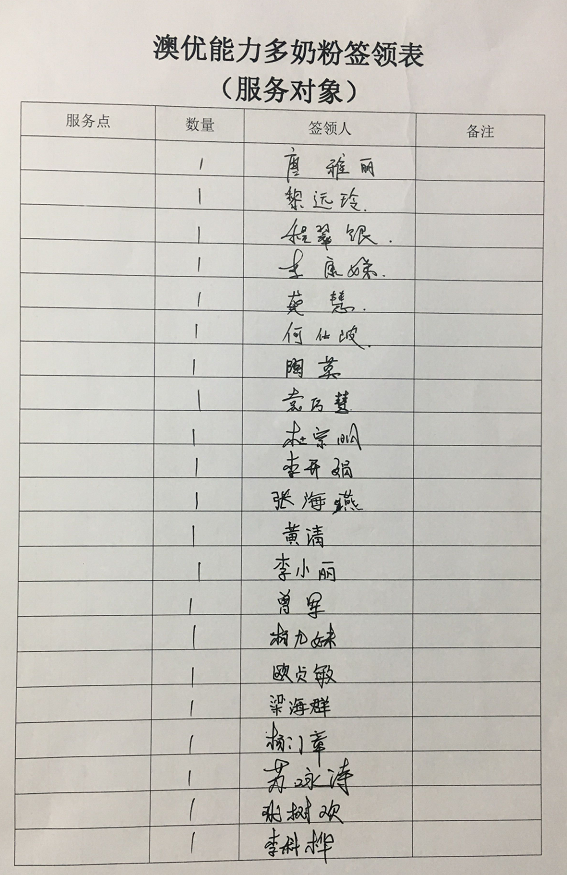 澳优能力多奶粉签领表
（服务对象）
服务点 数量 签领人 备注
1 唐雅丽
1 黎远玲.
1 程翠银.
1 李康娣.
1 龚慧.
1 何仕波.
1 陶英
1 袁巧慧
1 杜宗明
1 李开娟
1 张海燕
1 黄清
1 李小丽
1 曾军
1 杨九妹
1 欧贞敏
1 梁海群
1 杨门章
1 苏咏涛
1 树欢
1 李科桦